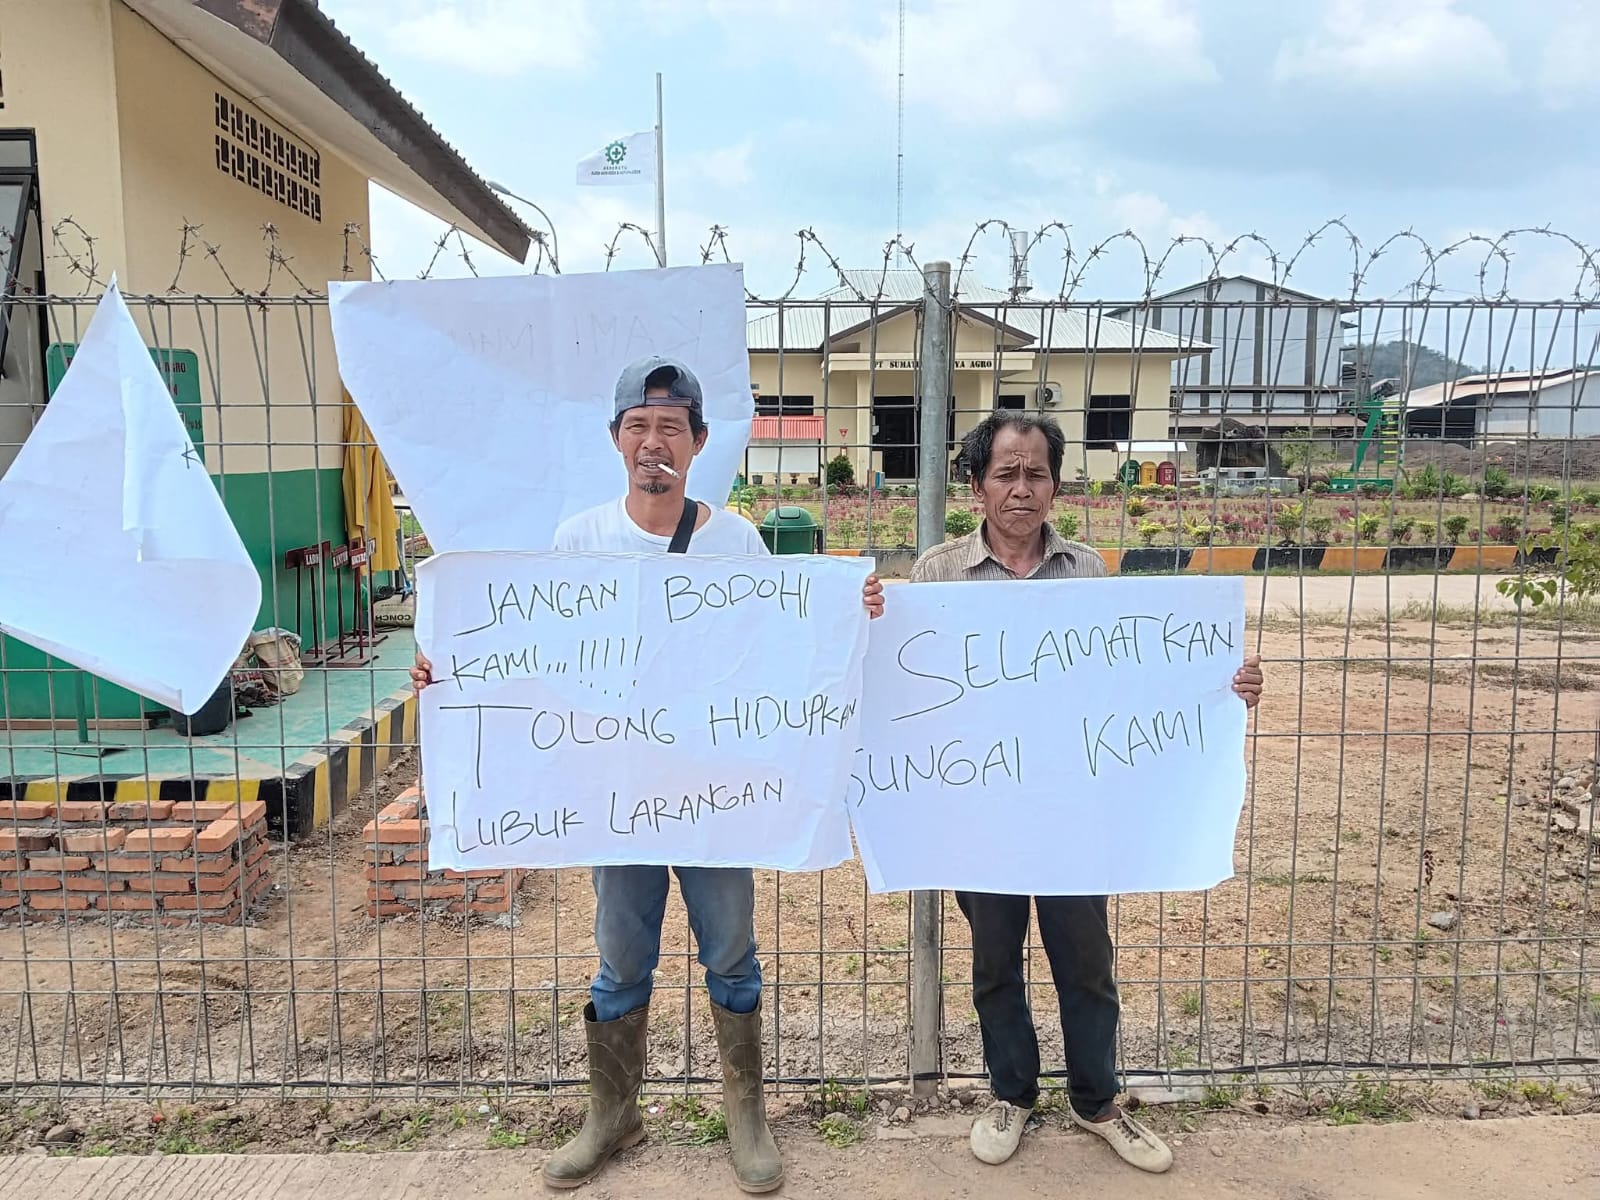 KAMI
PT SUMAT YA AGRO
AGRO
JANGAN BODOHI
KAMI,,, !!!!!
TOLONG HIDUPKAN
LUBUK LARANGAN
SELAMATKAN
SUNGAI KAMI